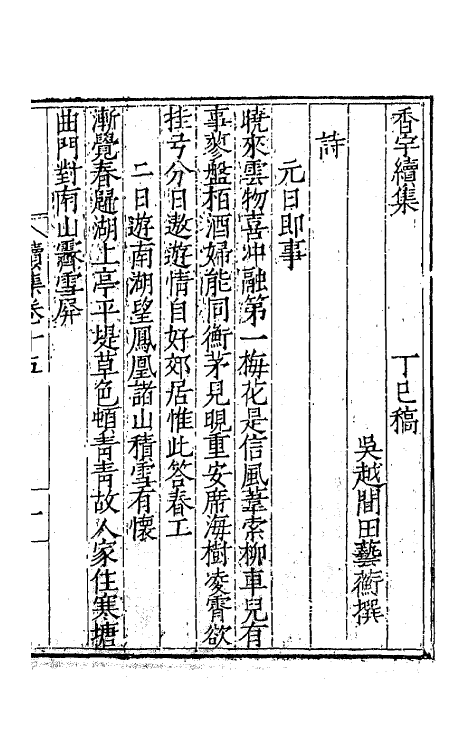 香宇續集 丁巳稿
吳越間田藝蘅撰
詩
元日即事
曉來雲物喜沖融第一梅花是信風葦索柳車兒有
事蓼盤栢酒婦能同衡茅見晛重安席海樹凌霄欲
挂弓分日遨遊情自好郊居惟此答春工
二日遊南湖望鳳凰諸山積雪有懷
漸覺春歸湖上亭平堤草色頓青青故人家住寒塘
曲門對南山霽雪屏
續集卷十五 一